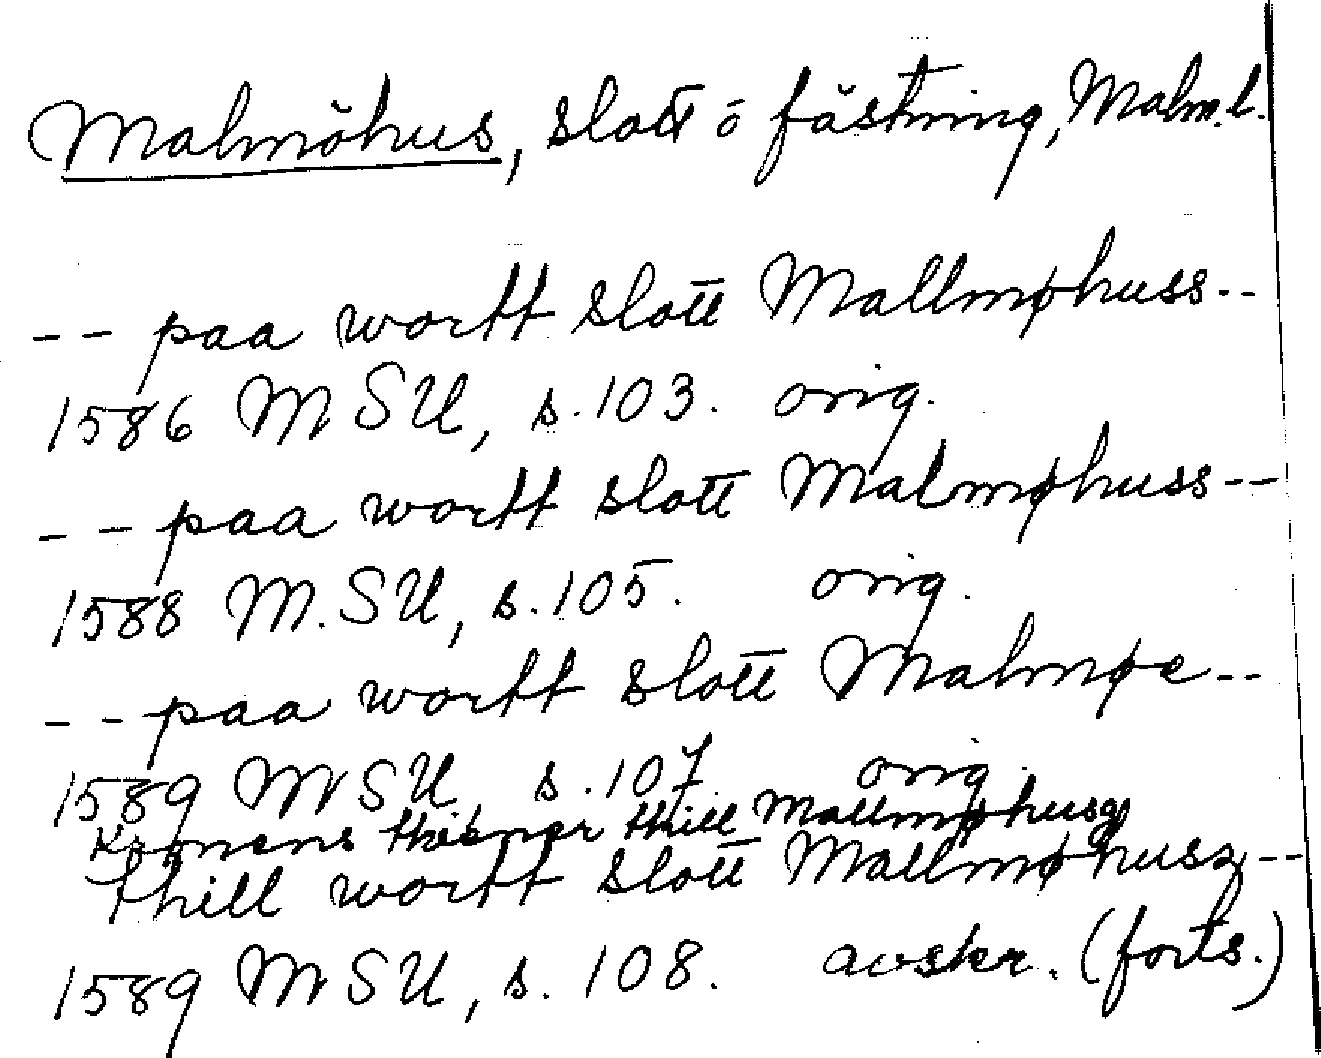 Malmöhus, slott o fästning, Malm.l.
-- paa wortt slott Mallmøhuss--
1586 MSU, s.103. orig.
-- paa wortt slott Malmøhuss--
1588 M.SU, s.105. orig.
-- paa wortt slott Malmøe--
1589 MSU, s.107 orig.
Kronens thienner thill Mallmøhusz
thill wortt slott Mallmøhusz--
1589 MSU, s. 108. avskr. (forts.)